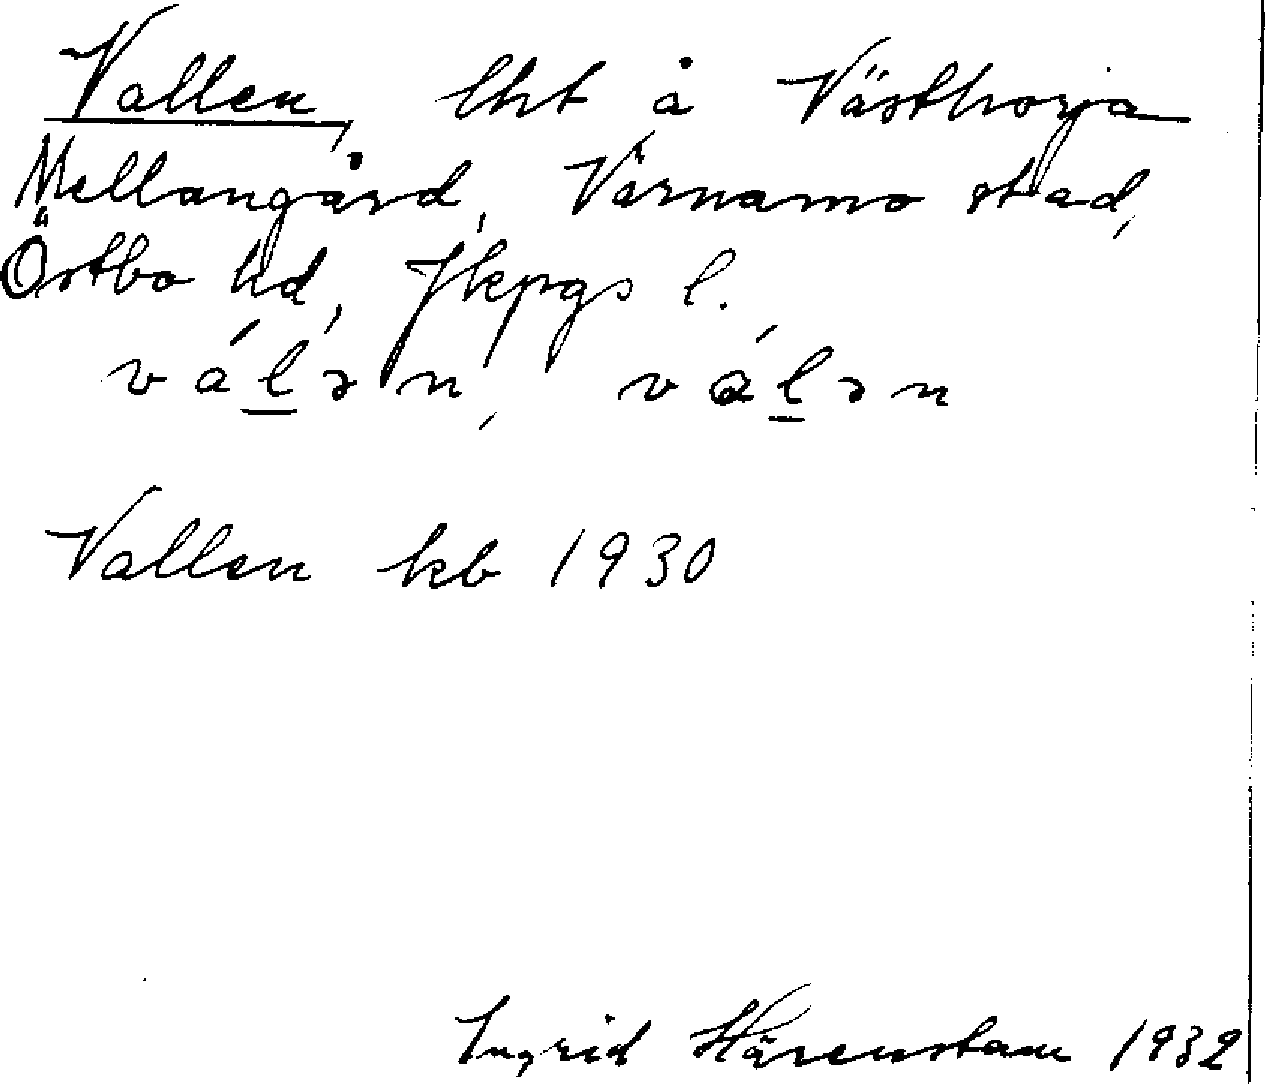 Vallen, lht å Västhorja
Mellangård, Värnamo stad,
Östbo hd, Jkpgs l.
váḻən, vɑ́ḻən
Vallen kb 1930
Ingrid Härenstam 1932